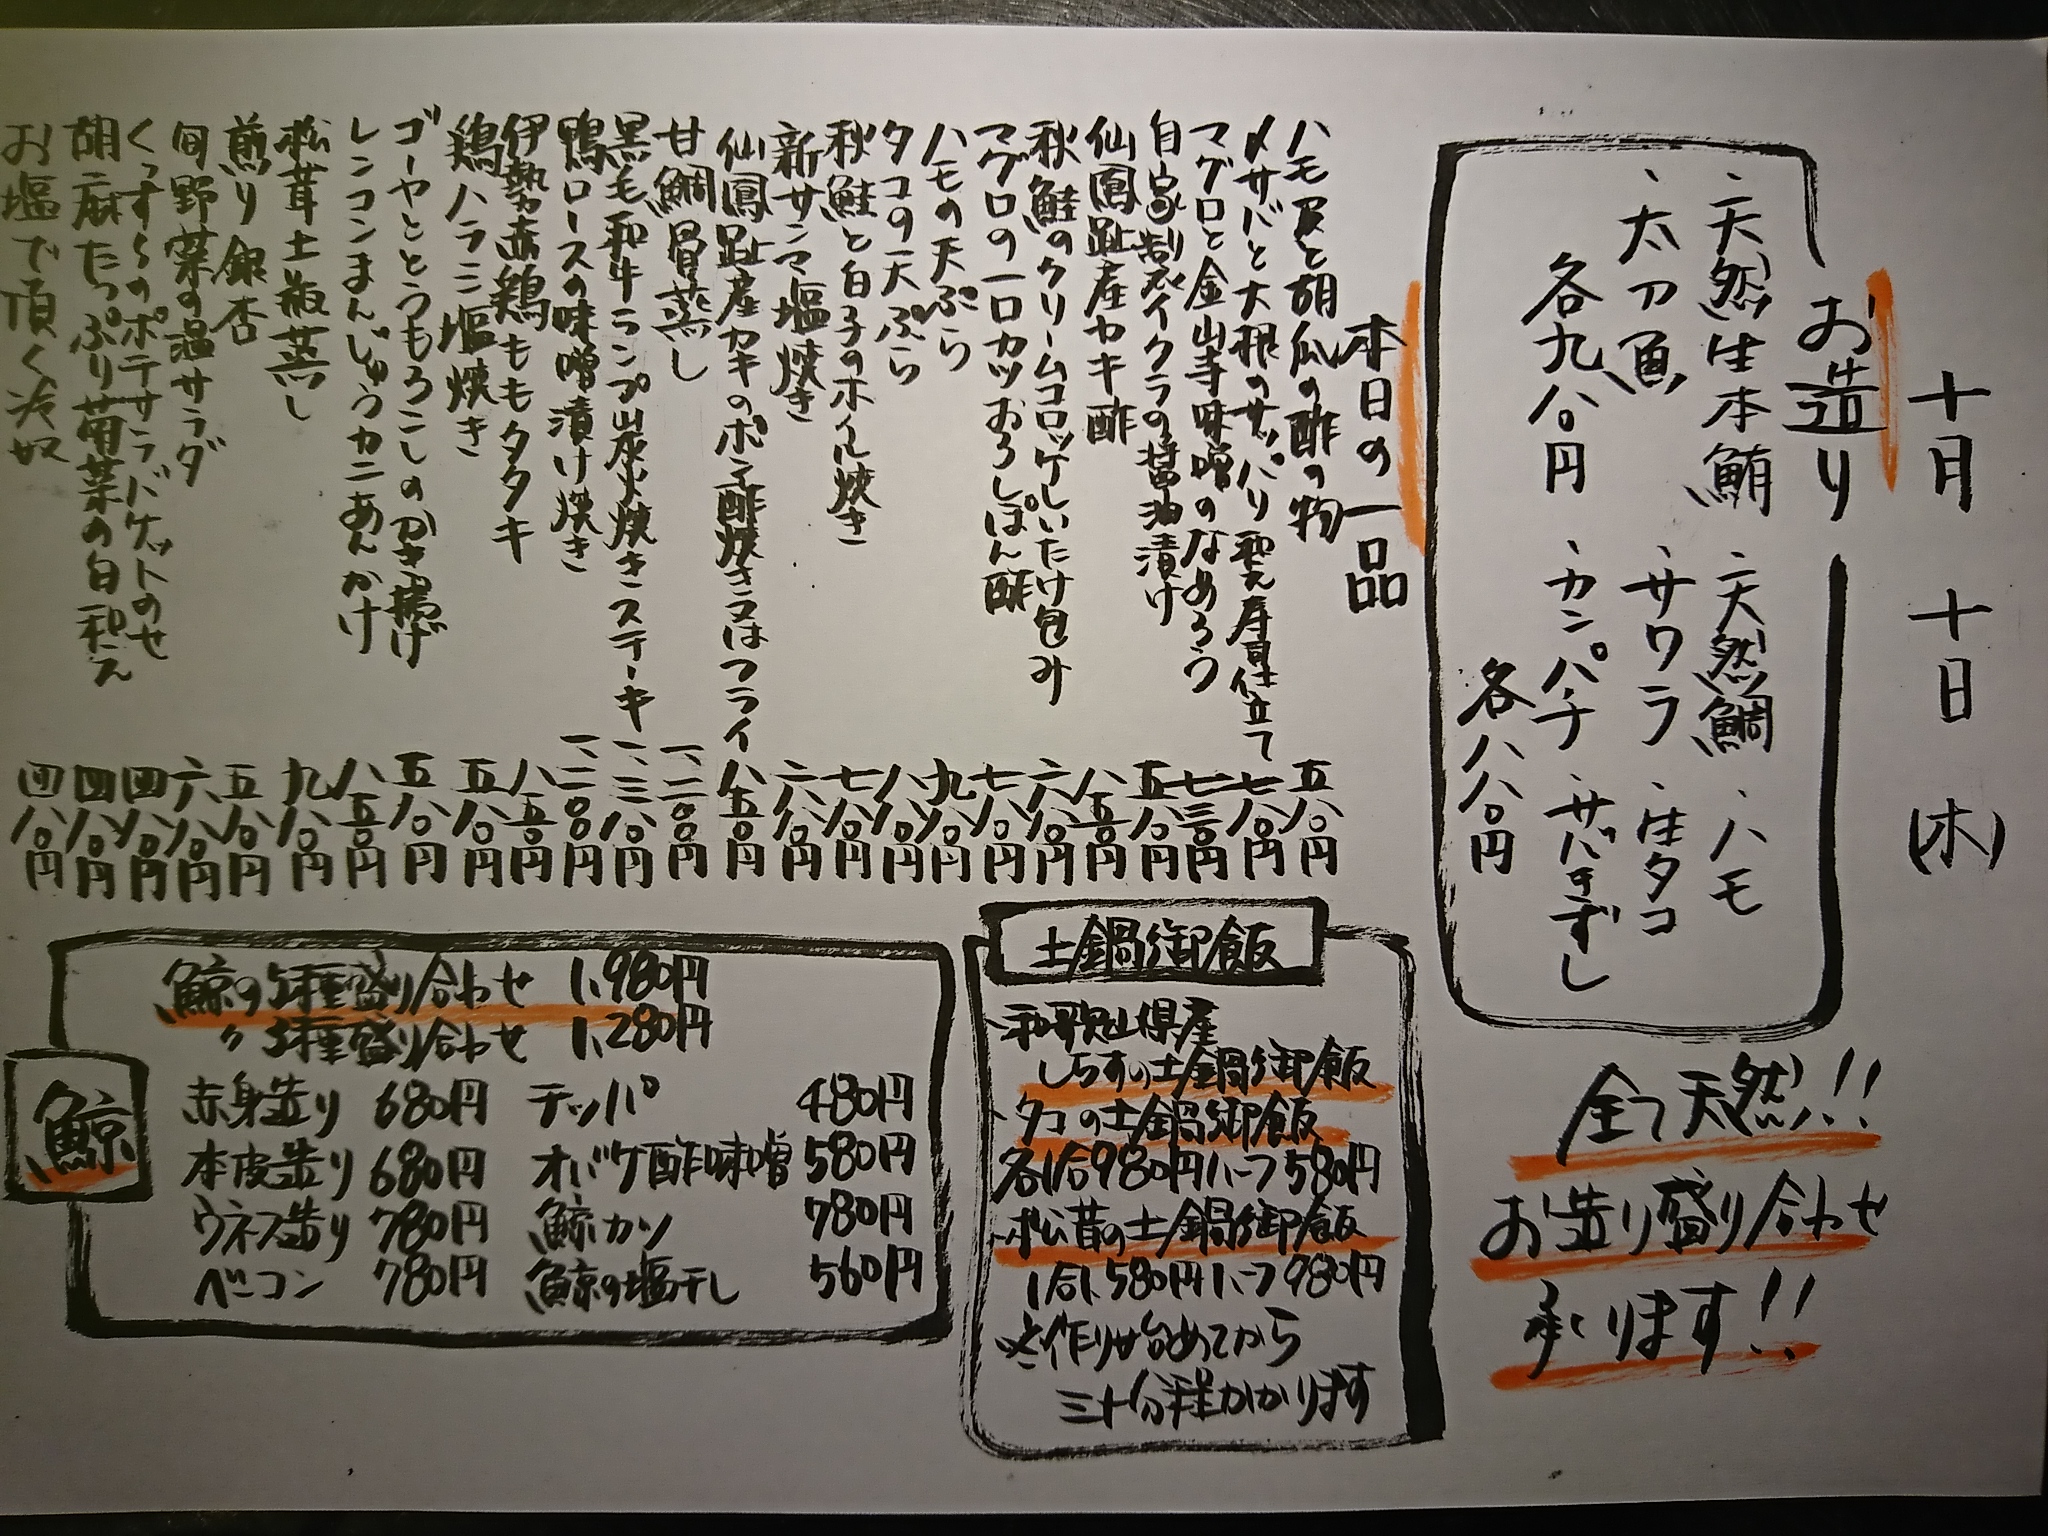 十月十日(木)
お造り
、天然生本鮪 、天然鯛 、ハモ
、太刀魚 、サワラ 、生タコ
各九八〇円 、カンパチ 、サバきずし
各八八〇円
全て天然!!
お造り盛り合わせ
承ります!!
本日の一品
ハモ皮と胡瓜の酢の物 五八〇円
〆サバと大根のサッパリ和え寿司仕立て 七八〇円
マグロと金山寺味噌のなめろう 七三〇円
自家製イクラの醤油漬け 五八〇円
仙鳳趾産カキ酢 八五〇円
秋鮭のクリームコロッケしいたけ包み 六八〇円
マグロの一口カツおろしぽん酢 七八〇円
ハモの天ぷら 九八〇円
タコの天ぷら 八八〇円
秋鮭と白子のホイル焼き 七八〇円
新サンマ塩焼き 六八〇円
仙鳳趾産カキのポン酢焼き又はフライ 八五〇円
甘鯛骨蒸し 一、二〇〇円
黒毛和牛ランプ炭火焼きステーキ 一、三八〇円
鴨ロースの味噌漬け焼き 一、二〇〇円
伊勢赤鶏ももタタキ 八五〇円
鶏ハラミ塩焼き 五八〇円
ゴーヤととうもろこしのかき揚げ 五八〇円
レンコンまんじゅうカニあんかけ 八五〇円
松茸土瓶蒸し 九八〇円
煎り銀杏 五八〇円
旬野菜の温サラダ 六八〇円
くっすのポテサラバケットのせ 四八〇円
胡麻たっぷり菊菜の白和え 四八〇円
お塩で頂く冷奴 四八〇円
土鍋御飯
、和歌山県産
しらすの土鍋御飯
、タコの土鍋御飯
各1合980円ハーフ580円
、松茸の土鍋御飯
1合1,580円ハーフ980円
※作り始めてから
三十分程かかります
鯨
鯨の5種盛り合わせ 1,980円
〃 3種盛り合わせ 1,280円
赤身造り 680円 テッパ 480円
本皮造り 680円 オバケ酢味噌 580円
ウネス造り 780円 鯨カツ 780円
ベーコン 780円 鯨の塩干し 560円